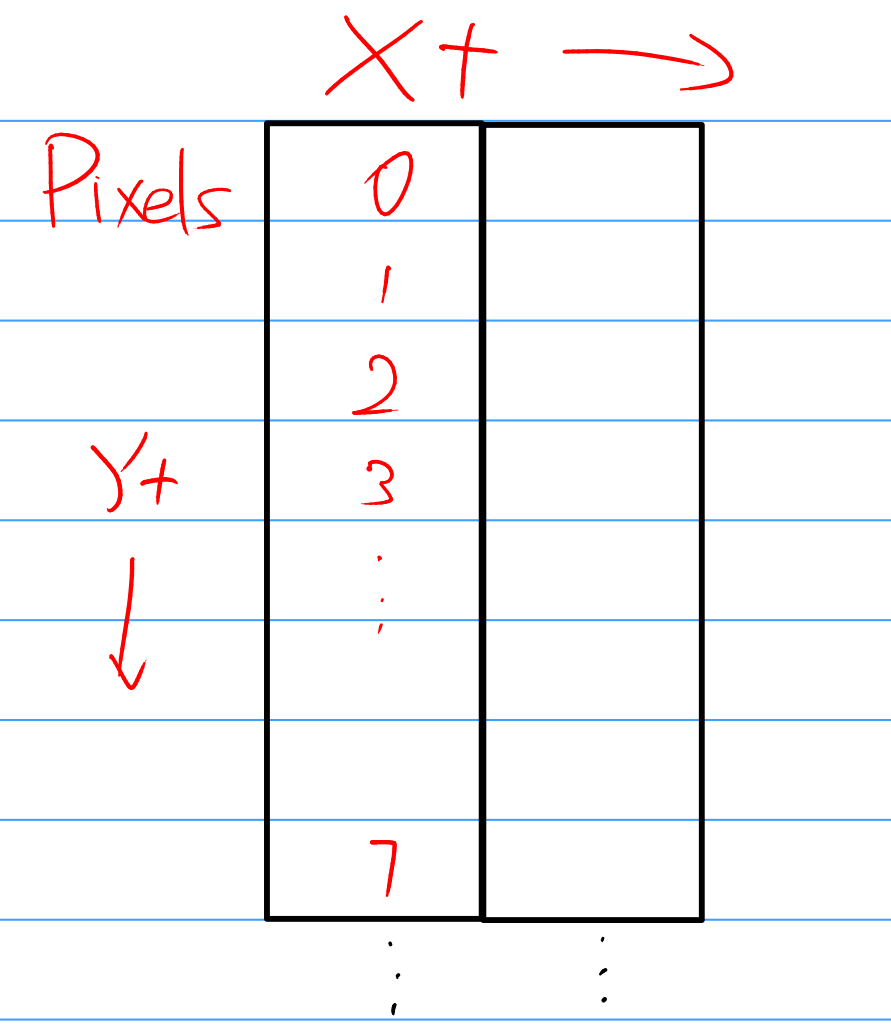 X+ →
Pixels
0
1
2
Y+
3
↓
⋮
7
⋮ ⋮